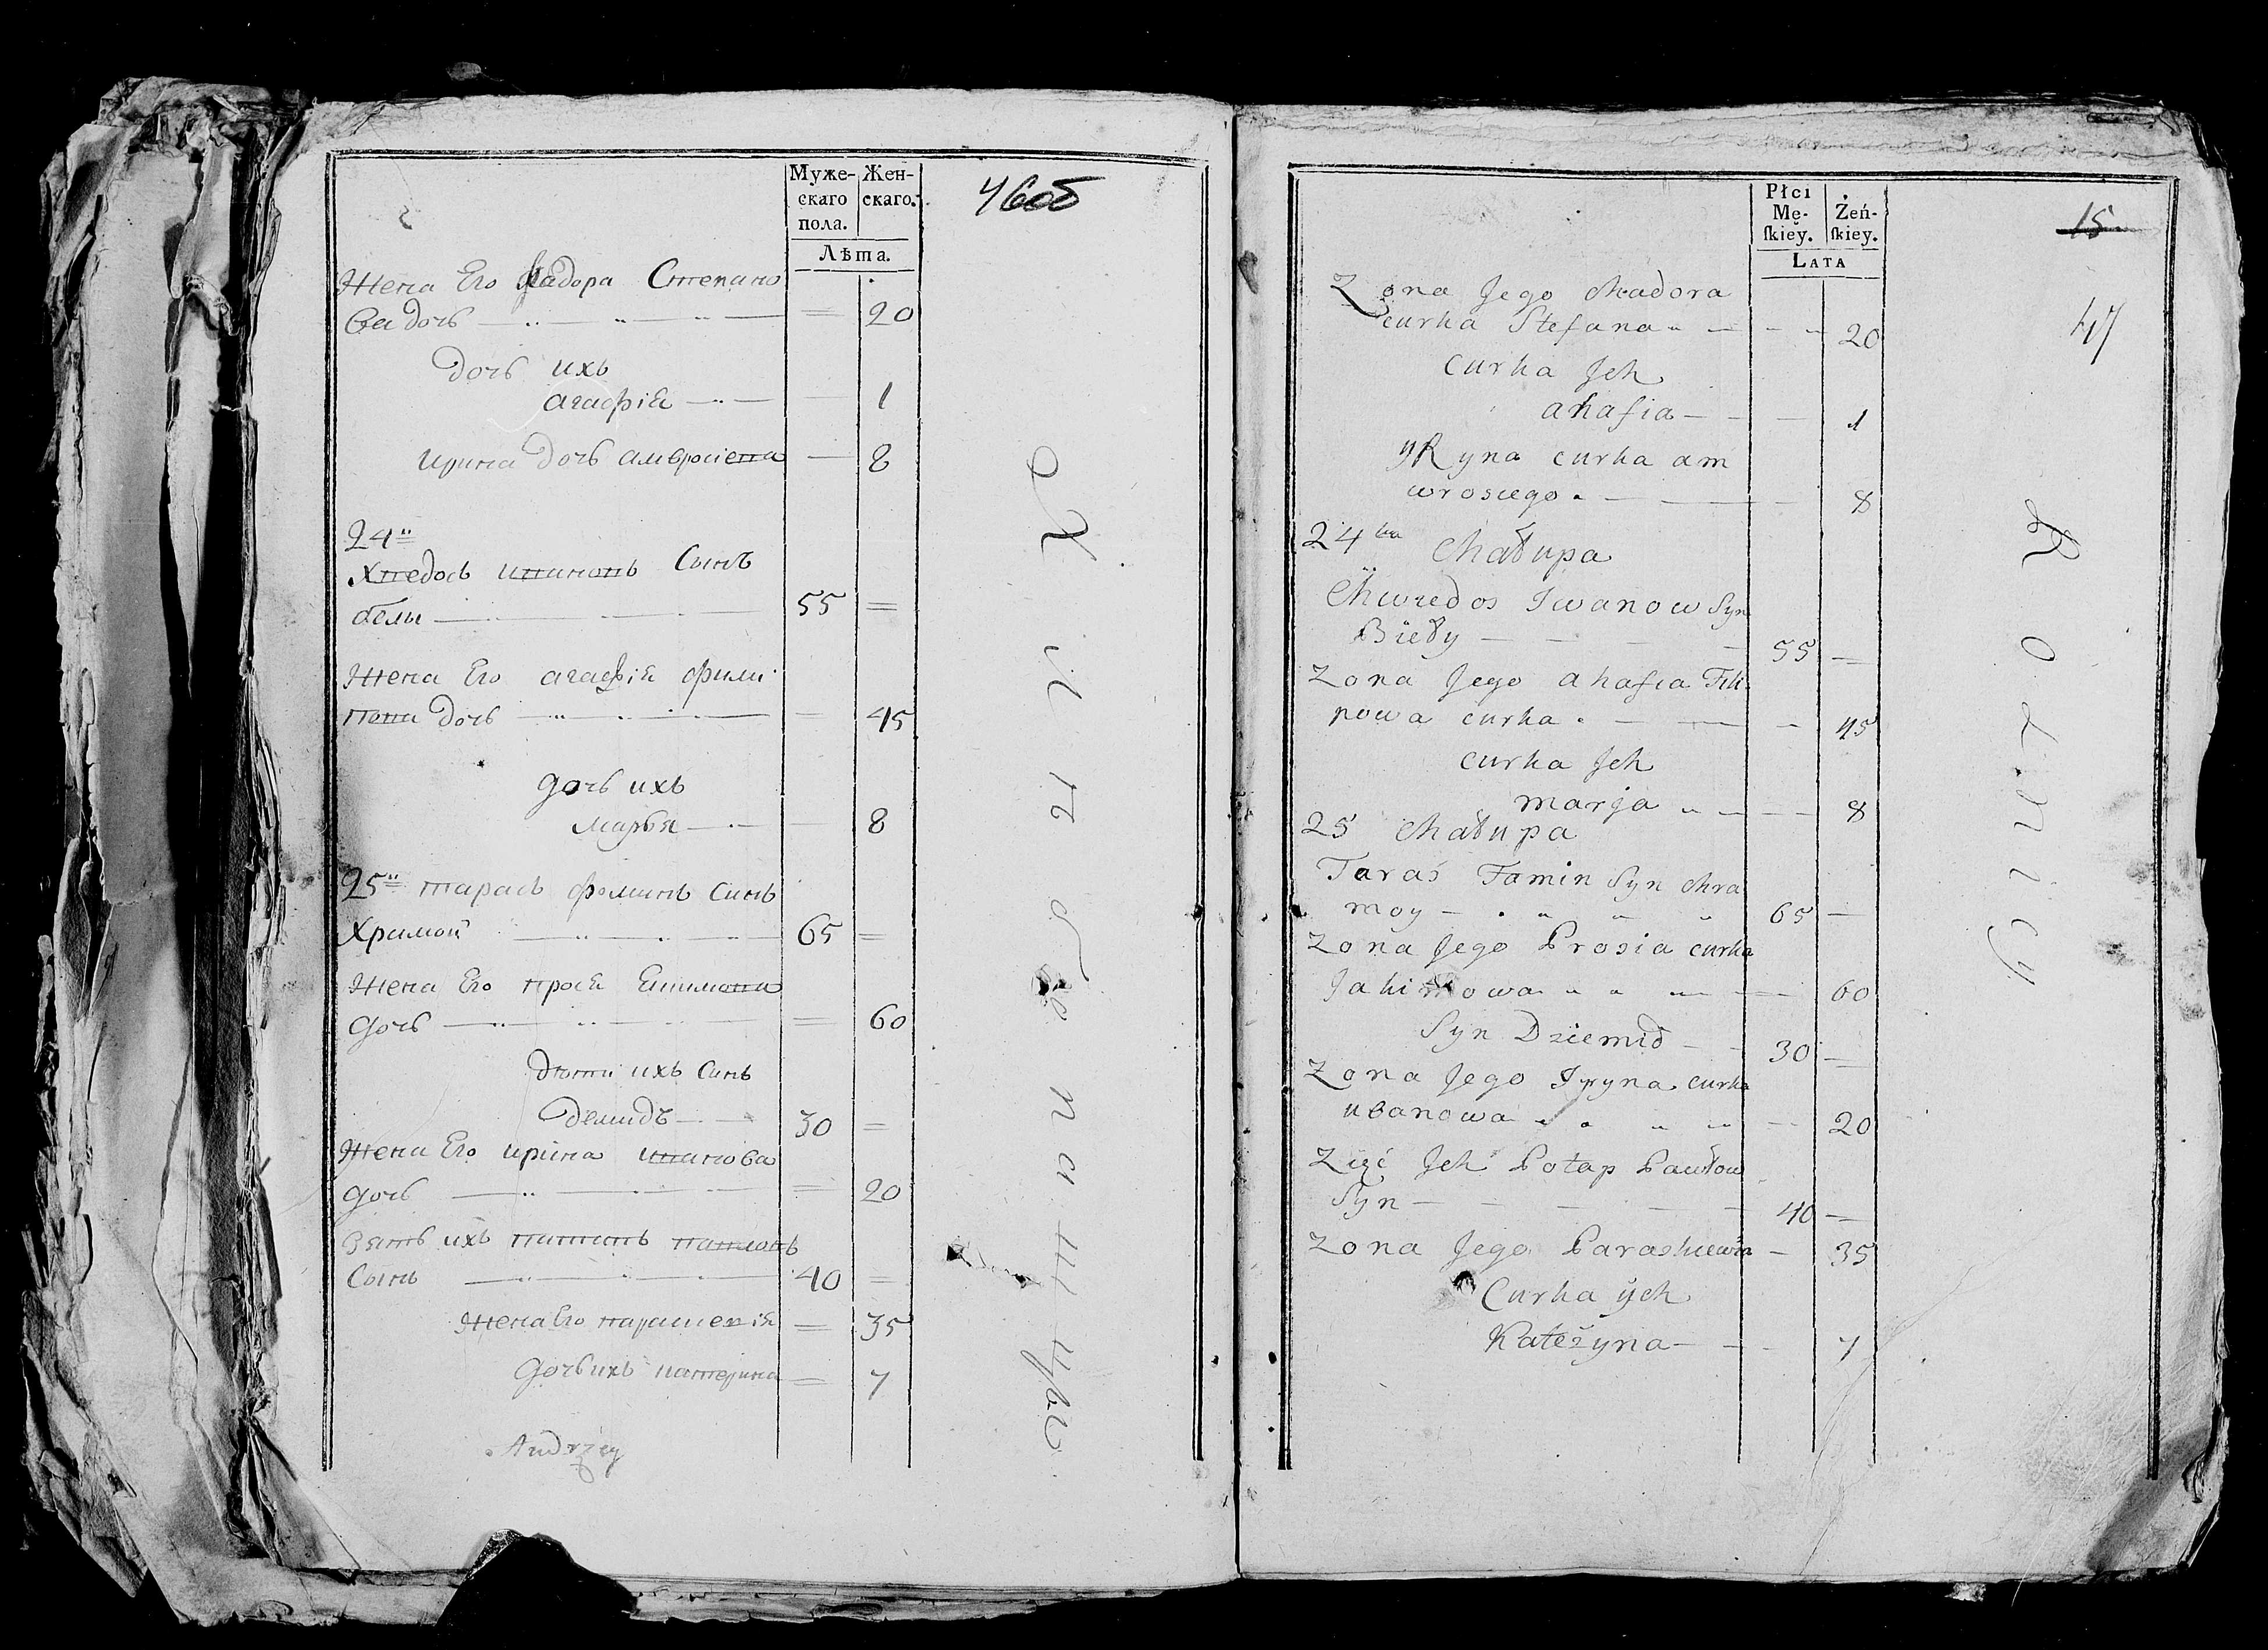 Муже-
скаго
пола.
Жен-
скаго.
Лѣта.
46об
Жена Его Хадора Степано
ва дочь 20
дочь ихъ
агафія 1
ирина дочь амвросіева 8
24
Хведосъ ивановъ Сынъ
белы 55
Жена Его агафія фили
пова дочь 45
дочь ихъ
марья 8
25 тарасъ фоминъ Синъ
Храмой 65
Жена Его прося Екимова
дочь 60
дѣти ихъ Синъ
Демидъ 30
Жена Его ирина иванова
дочь 20
Зять ихъ патапъ павловъ
Сынъ 40
Жена Его парасковія 35
дочь ихъ катерина 7
Andrzey
Płci
Mę-
ſkiey.
Żeń-
ſkiey.
LATA
15
47
Zona Jego Chadora
curka Stefana 20
curka Jch
ahafia 1
yRyna curka am
wrosiego 8
24ta Chałupa
Chwiedos Iwanow Syn
Bieły 55
Zona Jego ahafia Fili
powa curka 45
curka Jch
marja 8
25 Chałupa
Taraś Famin Syn Chra
moy 65
Zona Jego Prosia curka
Jakimowa 60
Syn Dziemid 30
Zona Jego Iryna curka
iwanowa 20
Zięć Jch Potap Pawłow
Syn 40
Zona Jego Paraskiewia 35
Curka ych
Kateżyna 7